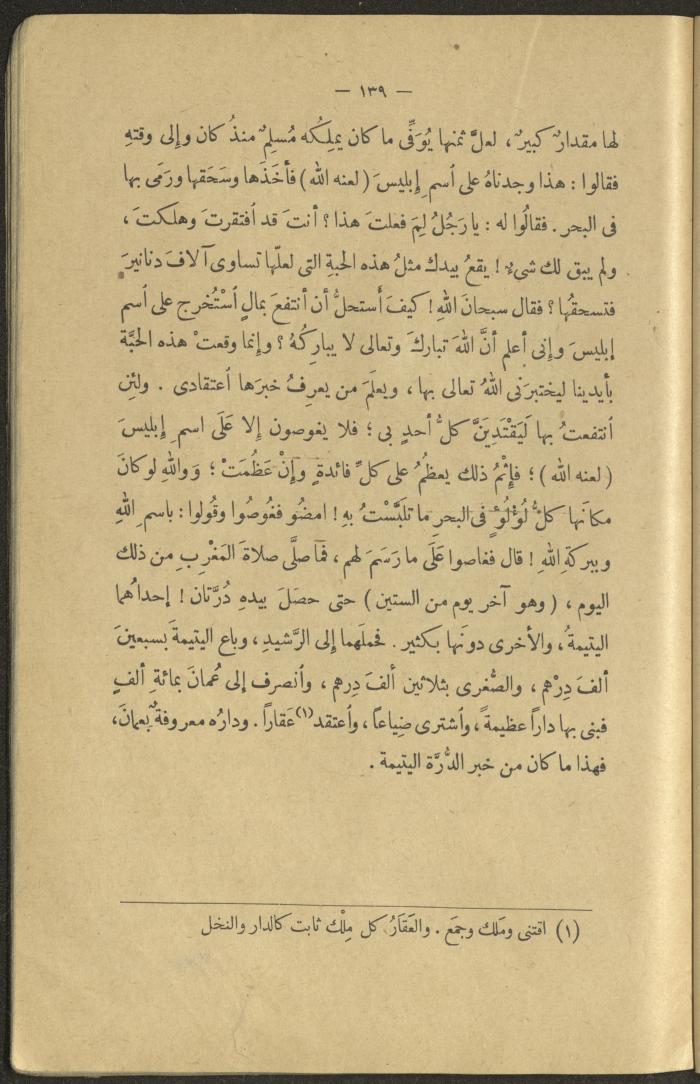 — ١٣٩ —
لها مقدارٌ كبيرٌ ، لعلَّ ثمنها يُوَفِّى ما كان يملِكُه مُسلِمٌ منذُ كان وإلى وقتهِ
فقالوا : هذا وجدناهُ على أسمِ إبليسَ (لعنه الله) فأخَذَها وسَحَقها ورَمَى بها
فى البحر . فقالُوا له : يا رَجُلُ لِمَ فعلتَ هذا ؟ أنتَ قد أفتقرتَ وهلكتَ ،
ولم يبق لك شىءٌ ! يقعُ بيدك مثلُ هذه الحبةِ التى لعلّها تساوى آلافَ دنانيرَ
فتسحقُها ؟ فقال سبحانَ اللهِ ! كيفَ أَستحلُّ أن أنتفعَ بمالٍ أسْتُخرج على أسم
إبليسَ وإنى أعلم أنَّ اللهَ تباركَ وتعالى لا يبارِكُهُ ؟ وإنما وقعتْ هذه الحبَّة
بأيدينا ليختبرَنى اللهُ تعالى بها ، ويعلَمَ من يعرِفُ خبرَها أعتقادى . ولئِن
أنتفعتُ بها لَيَقْتَدِيَنَّ كلُّ أحدٍ بى ؛ فلا يغوصون إلا عَلَى اسمِ إبليسَ
(لعنه الله) ؛ فإثمُ ذلك يعظُمُ على كلِّ فائدةٍ وإنْ عَظُمَتْ ؛ وَواللهِ لو كانَ
مكانَها كلُّ لُؤْلُؤٍ فى البحرِ ما تلبَّسْتُ بهِ ! امضُو فغُوصُوا وقُولوا : باسمِ اللهِ
وببركةِ اللهِ ! قال فغاصوا عَلَى ما رَسَمَ لهم ، فما صلَّى صلاةَ المَغْرِبِ من ذلك
اليوم ، (وهو آخر يوم من الستين) حتى حصَلَ بيدهِ دُرَّتان ! إحداهُما
اليتيمةُ ، والأخرى دونَها بكثير . فحملَهما إلى الرَّشيدِ ، وباع اليتيمةَ بسبعينَ
ألفَ دِرْهم ، والصُّغرى بثلاثين ألفَ دِرهم ، وأنصرف إلى عُمانَ بمائةِ ألفٍ
فبنى بها داراً عظيمةً ، وأشترى ضِياعاً ، وأعتقد (١) عَقاراً . ودارُه معروفةٌ بعمانَ ،
فهذا ما كان من خبر الدُّرَّة اليتيمة .
(١) اقتنى ومَلك وجمَع . والعَقَارُ كل مِلْك ثابت كالدار والنخل